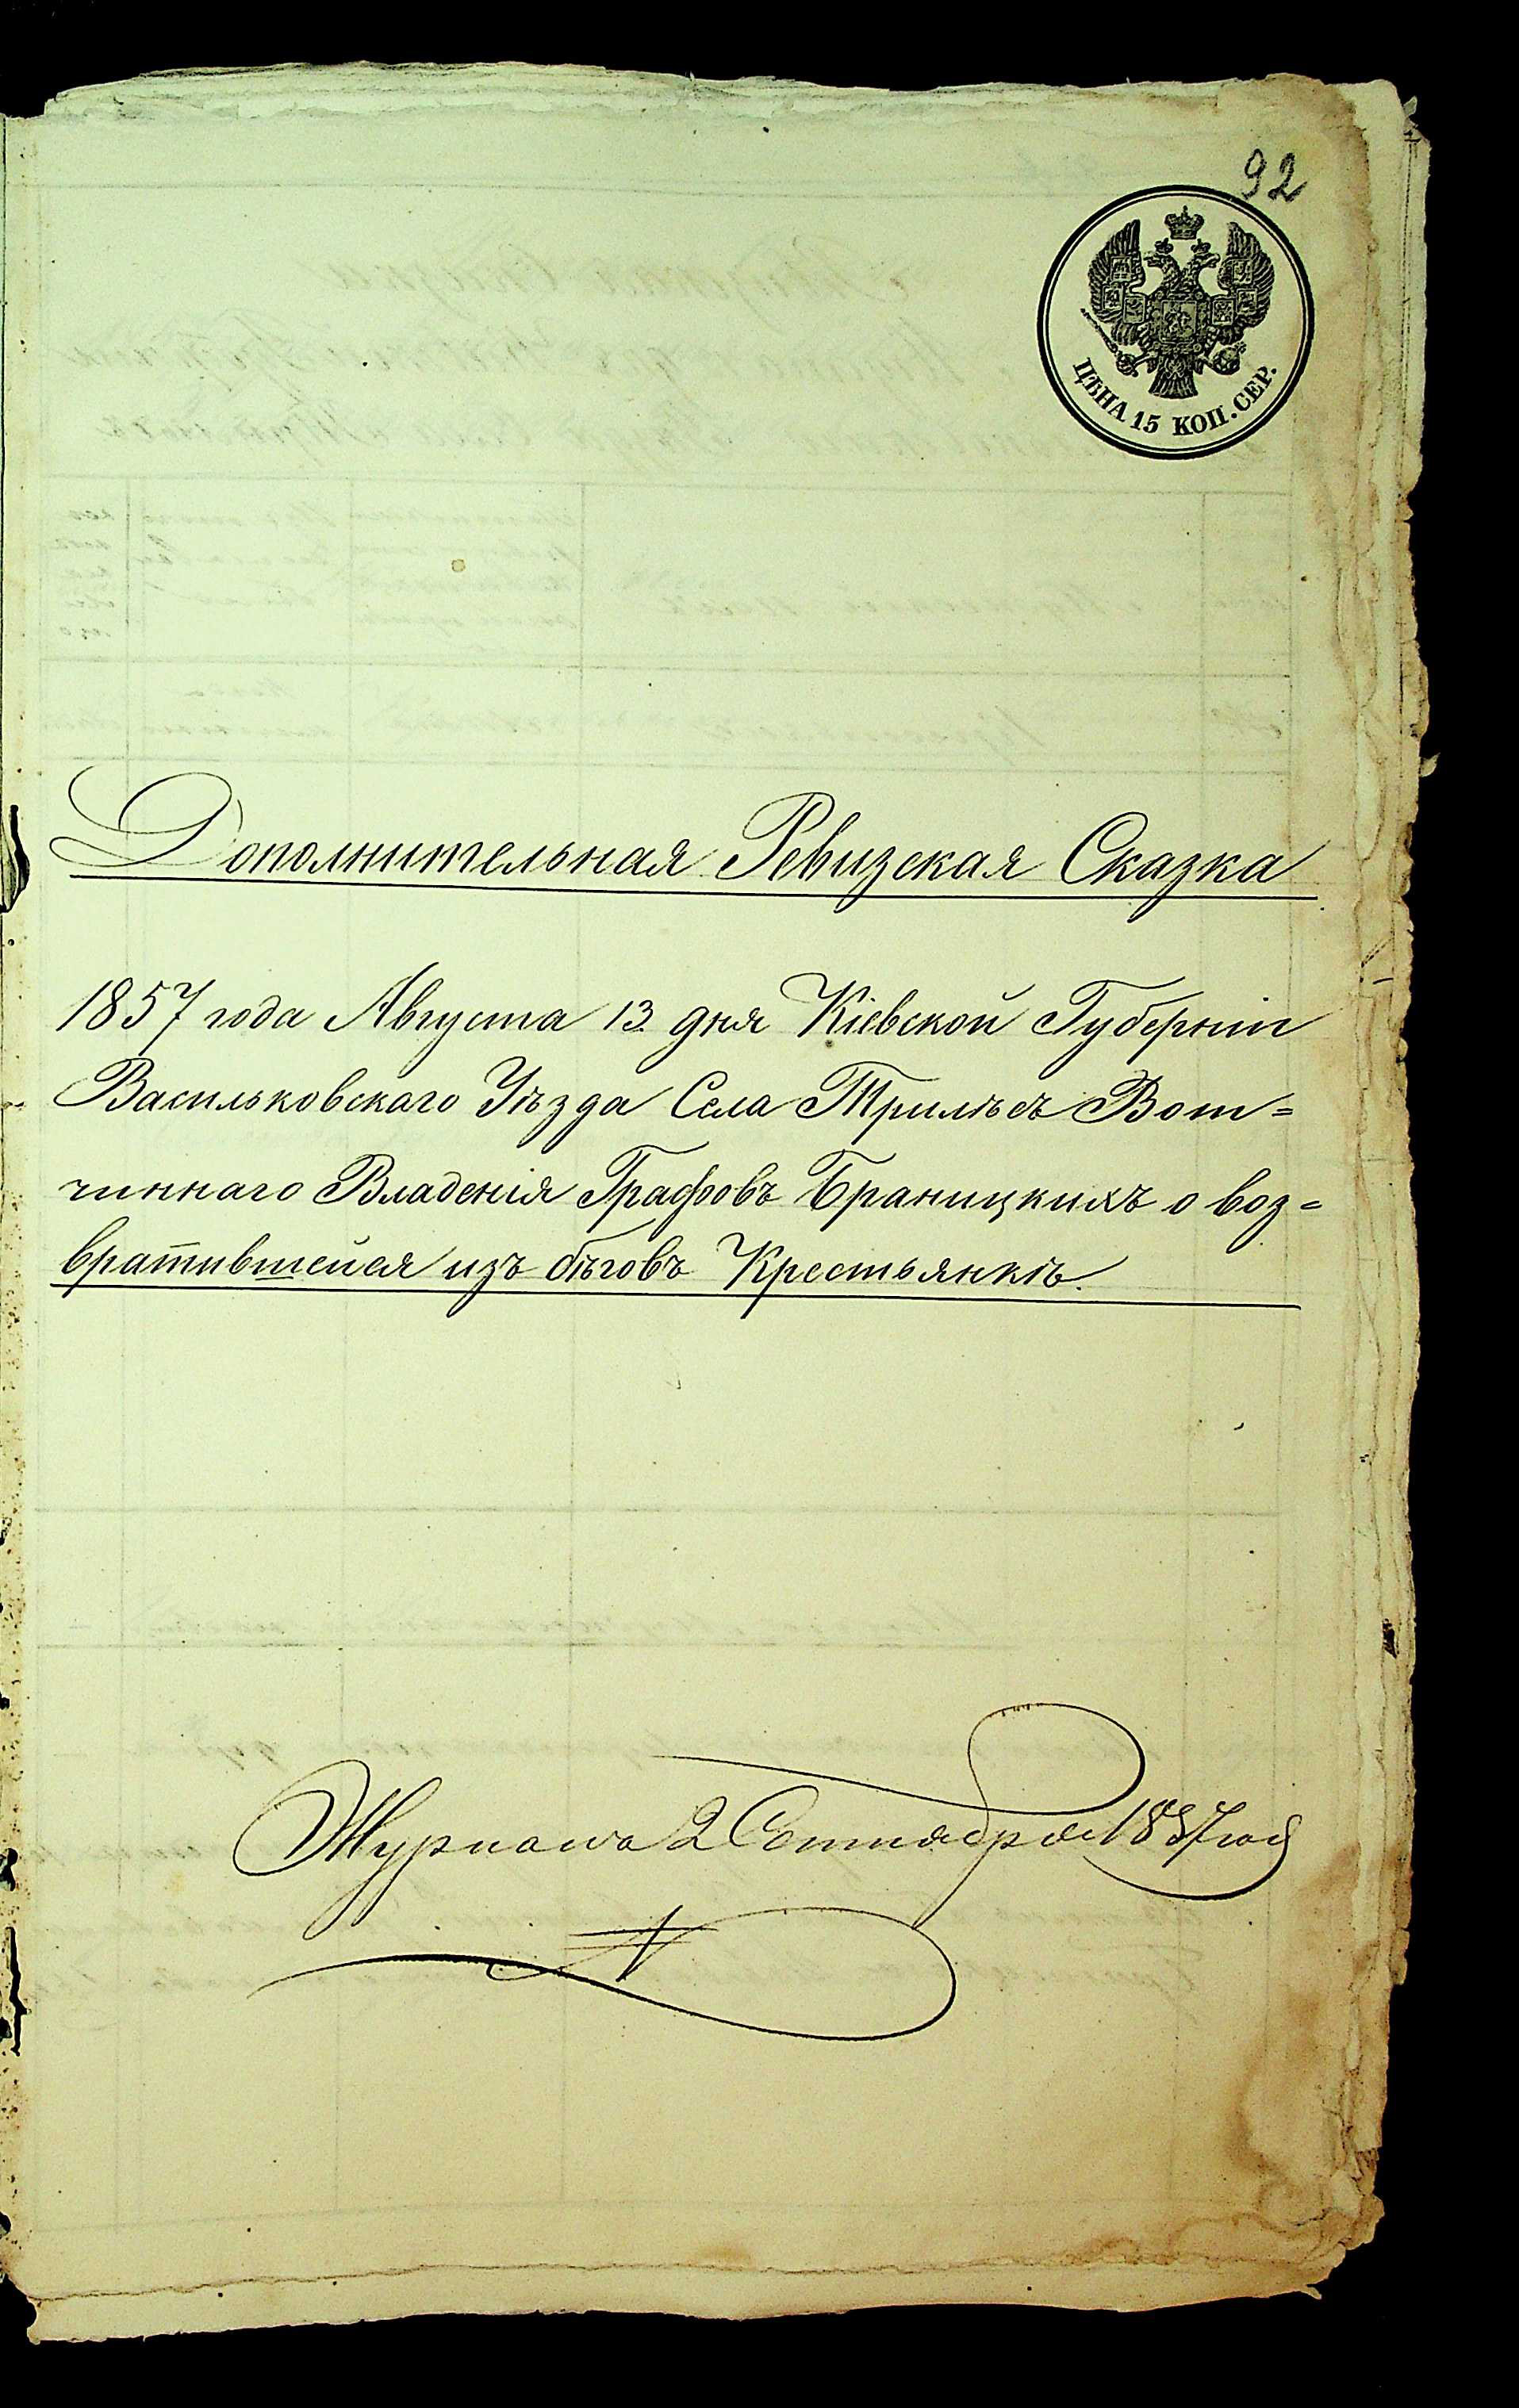 92
ЦѢНА 15 КОП. СЕР.
Дополнительная Ревизская Сказка
1857 года Августа 13 дня Кіевской Губерніи
Васильковскаго Уѣзда Села Трилѣсъ Вот=
чиннаго Владенія Графовъ Браницкихъ о воз=
вратившейся изъ бѣговъ Крестьянкѣ.
2 Сентября 1857 год